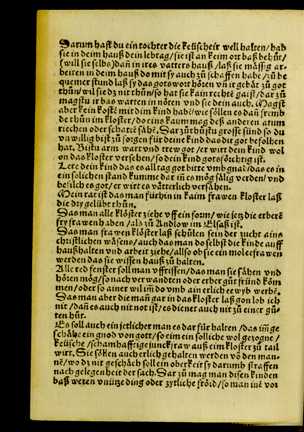 Darum hast du ein tochter die keüscheit well halten / hab
sie in deim hauß dein lebtag / sie ist an keim ort baß behüt /
(will sie selbs) dañ in ires vatters hauß / laß sie mässig ar-
beiten in deim hauß do mit sy auch zů schaffen habe / zů be
quemer stund laß sy das gots wort hören vñ ir gebät zů got
thůn / wil sie dz nit thůn / so hat sie kain rechte gaist / dar zů
magstu ir baß warten in nöten vnd sie dein auch. Magst
aber kein kost mit dim kind habē / wie söllen es dañ frembde
thůn im kloster / do eins kaum mag deß anderen atum
riechen oder schatē sähē. Dar zů thůstu grosse sünd so du
vnwillig bist zů sorgen für dein kind das dir got befolhen
hat. Bistu arm wart vnd trew got / er wirt dein kind wol
on das kloster versehen / so dein kind gotsförchtig ist.
Lere dein kind das es all tag got bitte vmb gnad / das es in
ein solichen stand kumme dar iñ es mög sälig werden / vnd
befilch es got / er wirt es vätterlich versähen.
Mein rat ist das man fürhin in kaim frawen kloster laß
die dry gelübd thůn.
Das man alle klöster ziehe vff ein form / wie jez die erberē
frawen haben / als zů Andlow im Elsaß ist.
Das man frawen kloster laß schůlen sein der zucht eins
christlichen wäsens / auch das man do selbst die kinde vff
haußhalten vnd arbeit ziehe / also ob sie ein mol eefrawen
werden das sie wissen hauß zů halten.
Alle red fenster soll man vffrissen / das man sie sähen vnd
hören mög / so nach verwandten oder erber gůt fründ kömen /
oder so ainer wol im do vmb ain erlich ee wyb werbē.
Das man aber die mañ gar in das kloster laß gon lob ich
nit / dañ es auch nit not ist / es dienet auch nit zů einer gůten
hůt.
Es soll auch ein jetlicher man es dar für halten / das im ge
schähe ein gnod von gott / so eim ein solliche wol gezogne /
keüsche / schamhafftige junckfraw auß eim kloster zů tail
wirt. Sie sollen auch erlich gehalten werden võ den mannē /
wo dz nit geschäch soll ein oberkeit sy darumb straffen
nach gelegenheit der sach. Dar zů mag man disen kinden
baß wezen vnütze ding oder zytliche fröid / so man inē vor